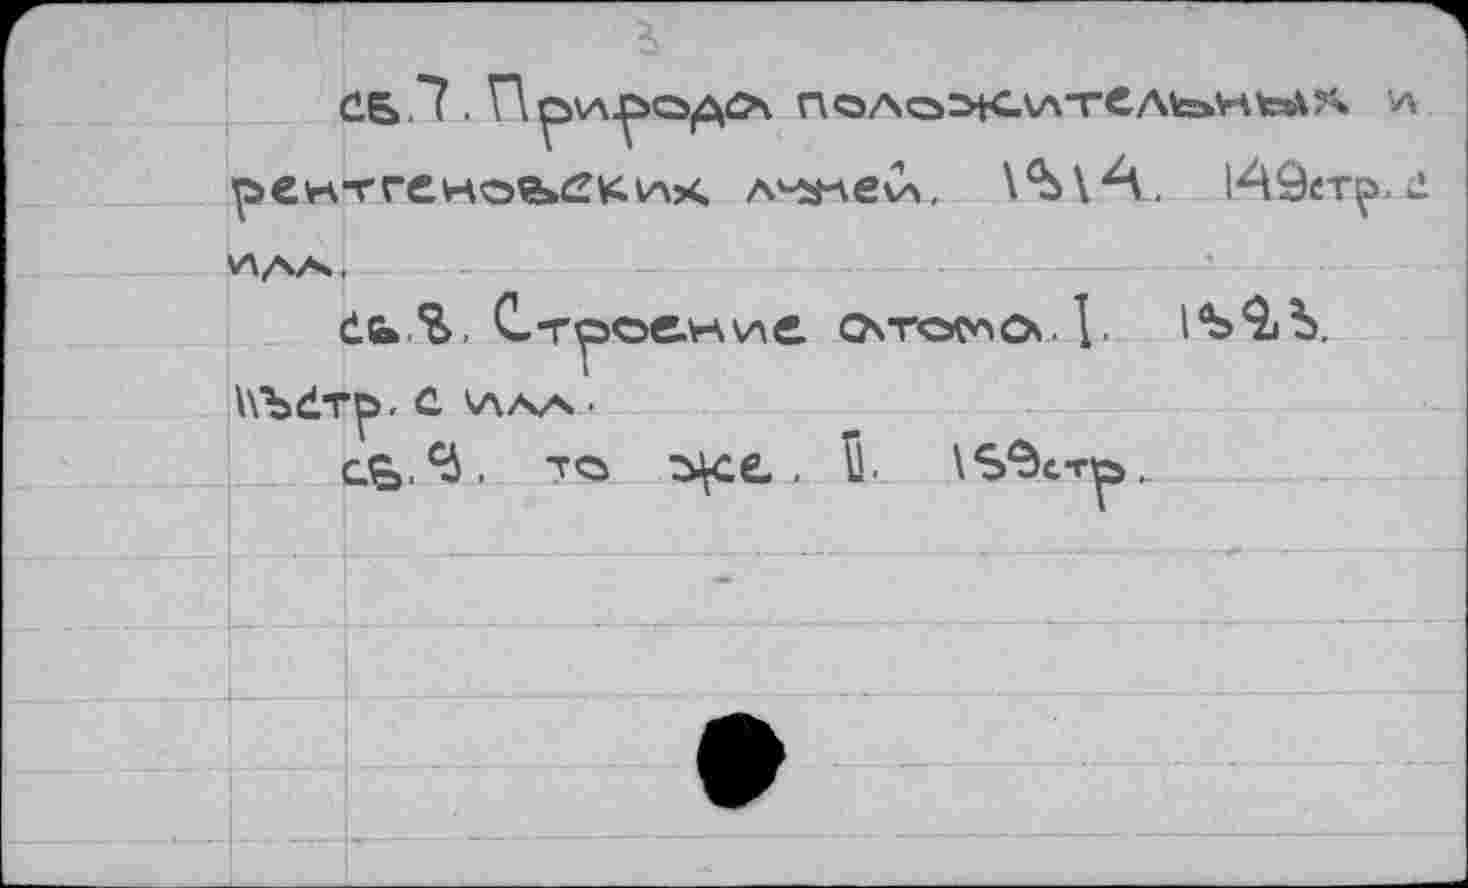 3
сб.7. Природа положительных и
рентгеновских лучей. 1914. 149стр. с
илл.
сб.8. Строение атома. I. 1923.
113стр. с илл.
сб.9. то же. II. 159стр.